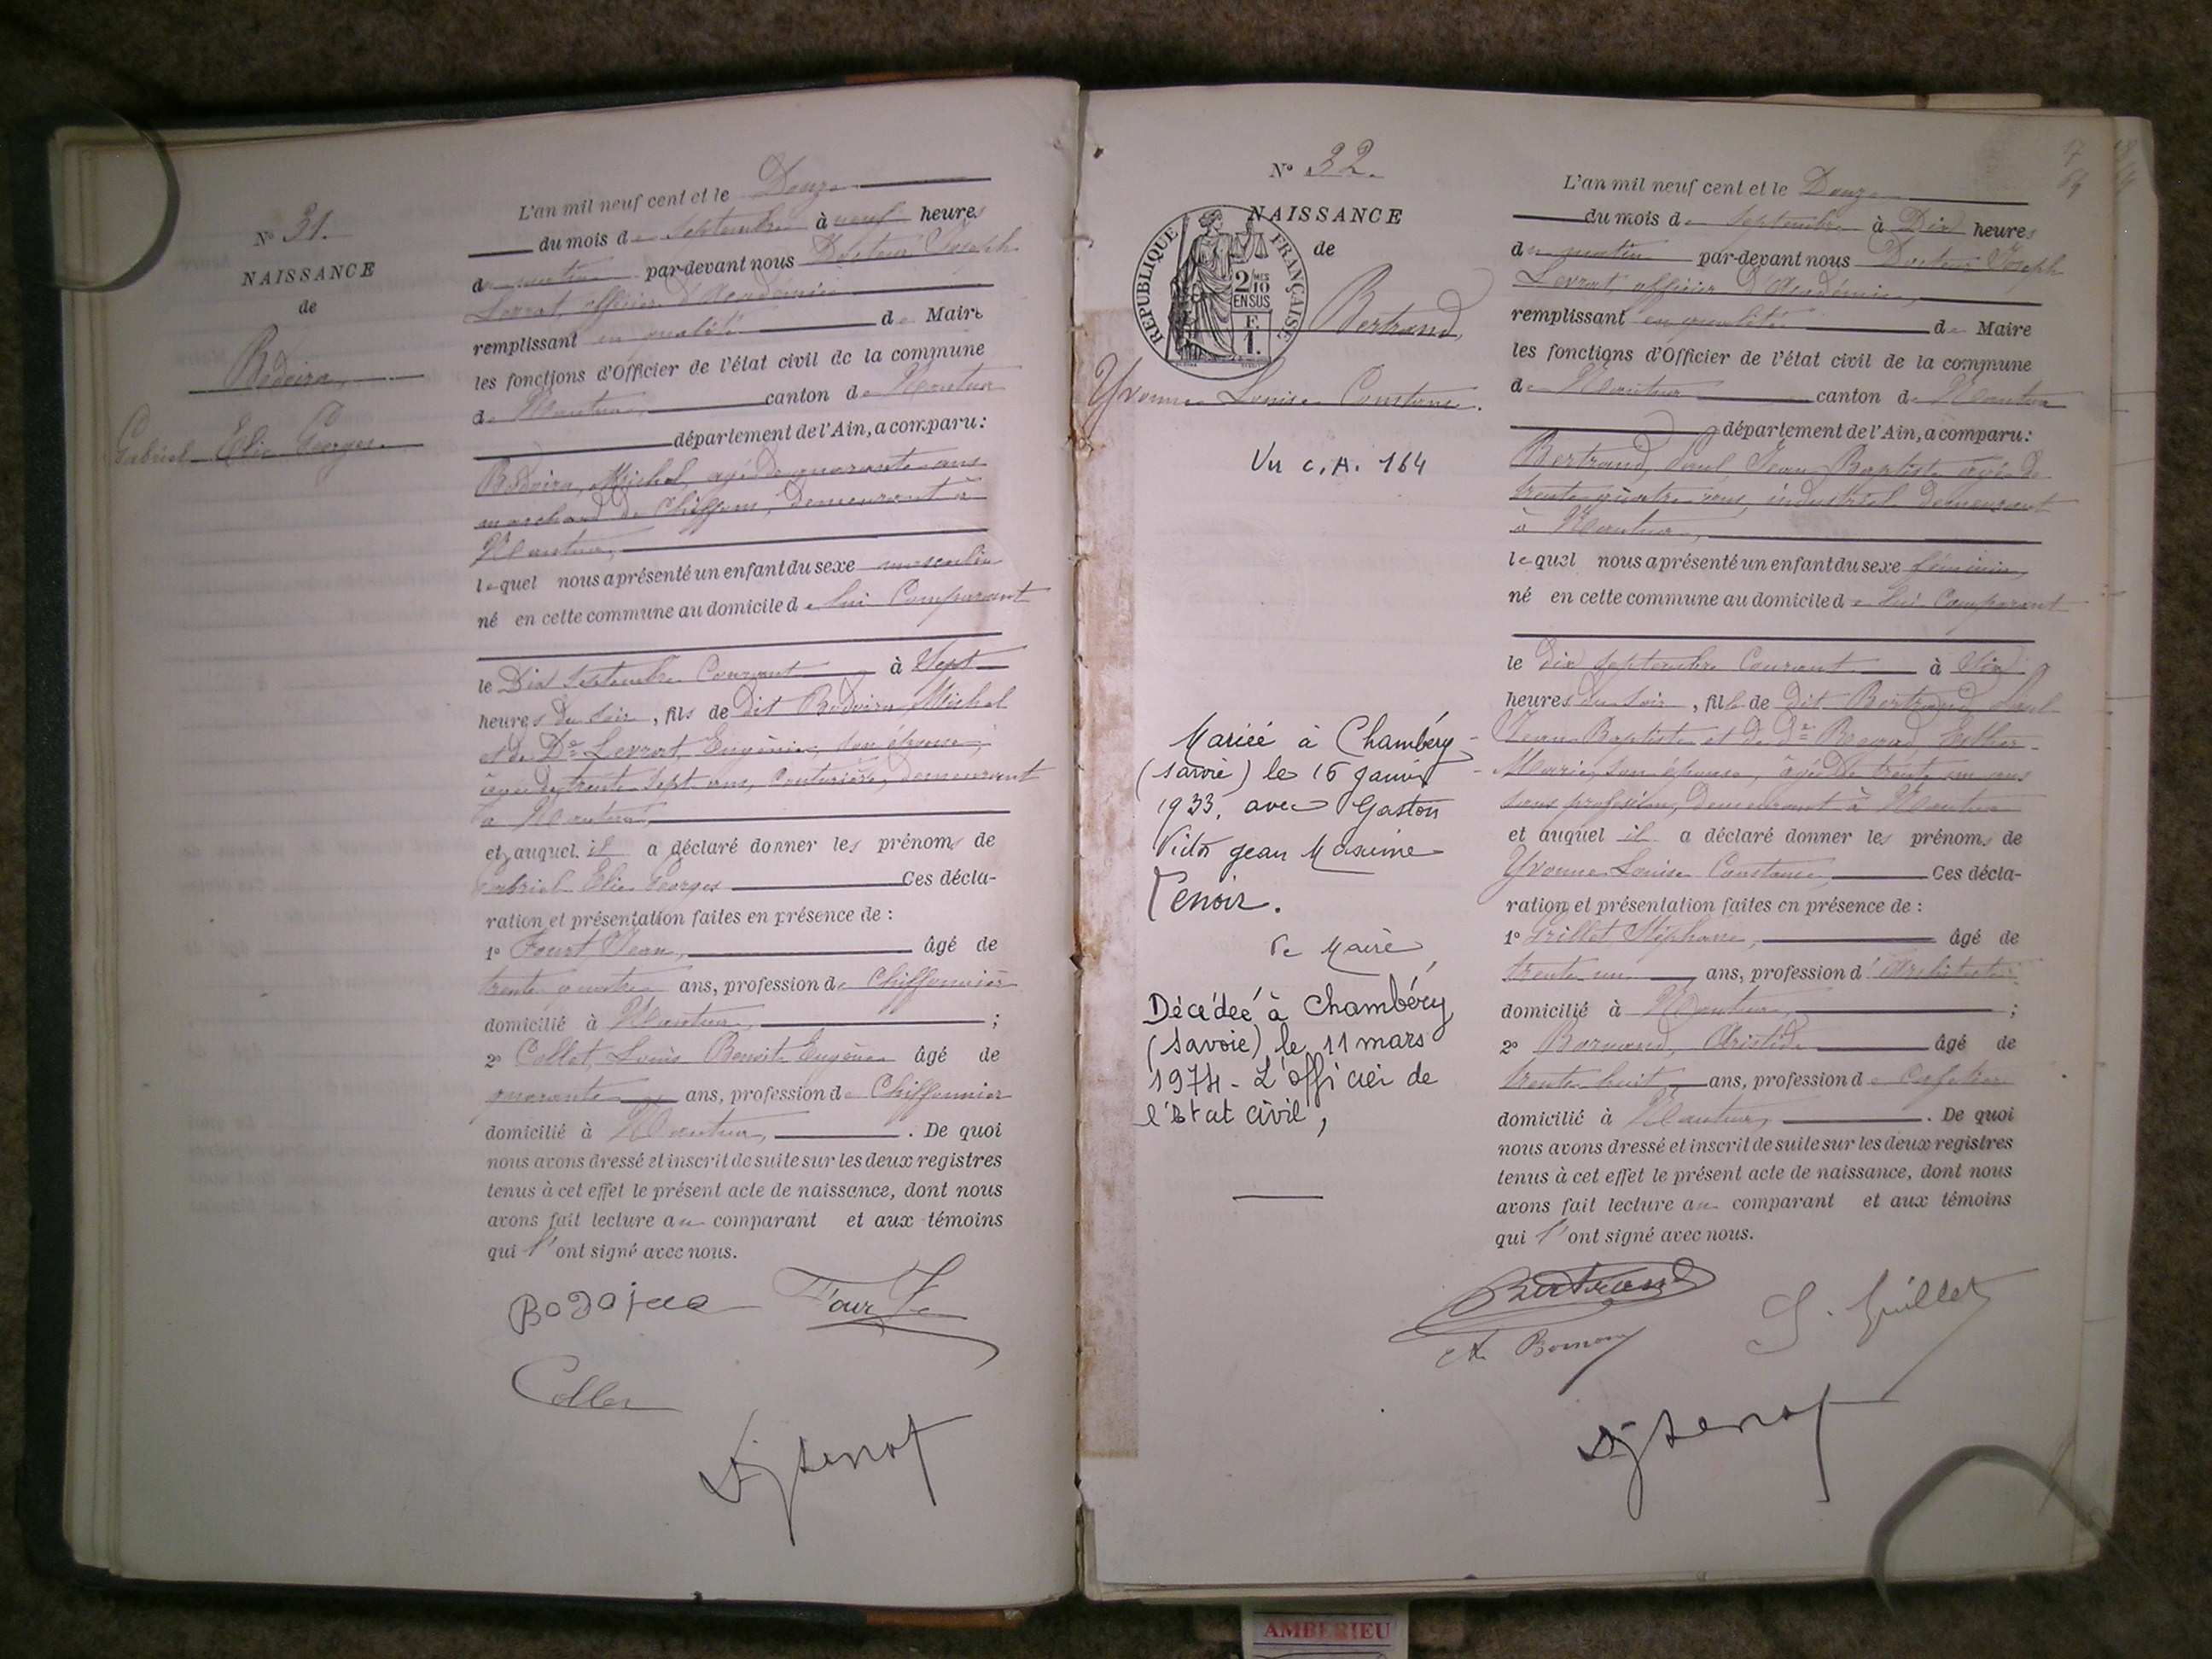 N° 31.
NAISSANCE
de
Bodoira,
Gabriel Elie Georges.
L'an mil neuf cent et le Douze
du mois de Septembre à neuf heures
du matin par-devant nous Docteur Joseph
Levrat, officier d'Académie
remplissant en qualité de Maire
les fonctions d'Officier de l'état civil de la commune
de Nantua, canton de Nantua
département de l'Ain, a comparu:
Bodoira, Michel, agé de quarante ans
marchand de chiffons, demeurant à
Nantua,
lequel nous a présenté un enfant du sexe masculin
né en cette commune au domicile de lui Comparant
le Dix Septembre Courant à Sept
heures du soir, fils de dit Bodoira Michel
et de De Levrat, Eugénie, son épouse,
âgée de trente sept ans, Couturière, demeurant
à Nantua,
et auquel il a déclaré donner les prénoms de
Gabriel Elie Georges Ces décla-
ration et présentation faites en présence de :
1° Fourt Jean, âgé de
trente quatre ans, profession de Chiffonnier
domicilié à Nantua, ;
2° Collet, Louis Benoit Eugène âgé de
quarante ans, profession de Chiffonnier
domicilié à Nantua, . De quoi
nous avons dressé et inscrit de suite sur les deux registres
tenus à cet effet le présent acte de naissance, dont nous
avons fait lecture au comparant et aux témoins
qui l'ont signé avec nous.
Collet
N° 32.
NAISSANCE
de
REPUBLIQUE FRANÇAISE
2 MES
10
EN SUS
F.
1.
Bertrand,
Yvonne Louise Constance.
Vu C.A. 164
Mariée à Chambéry
(Savoie) le 16 janvier
1933, avec Gaston
Victor Jean Maxime
Lenoir.
Le Maire,
Décédée à Chambéry
(Savoie) le 11 mars
1974 - L'officier de
l'Etat civil,
L'an mil neuf cent et le Douze
du mois de Septembre à Dix heures
du matin par-devant nous Docteur Joseph
Levrat, officier d'Académie,
remplissant en qualité de Maire
les fonctions d'Officier de l'état civil de la commune
de Nantua canton de Nantua
département de l'Ain, a comparu:
Bertrand, Paul Jean Baptiste âgé de
trente quatre ans, industriel demeurant
à Nantua,
lequel nous a présenté un enfant du sexe féminin,
né en cette commune au domicile de lui Comparant
le dix Septembre Courant à Six
heures du soir, fille de dit Bertrand, Paul
Jean Baptiste et de De Esther
Marie, son épouse, âgée de trente un ans
sans profession, demeurant à Nantua
et auquel il a déclaré donner les prénoms de
Yvonne Louise Constance Ces décla-
ration et présentation faites en présence de :
1° Grillet Stéphane, âgé de
trente un ans, profession d'Architecte
domicilié à Nantua, ;
2° Aristide âgé de
trente huit ans, profession de Cafetier
domicilié à Nantua, . De quoi
nous avons dressé et inscrit de suite sur les deux registres
tenus à cet effet le présent acte de naissance, dont nous
avons fait lecture au comparant et aux témoins
qui l'ont signé avec nous.
Bertrand
S. Grillet
AMBERIEU